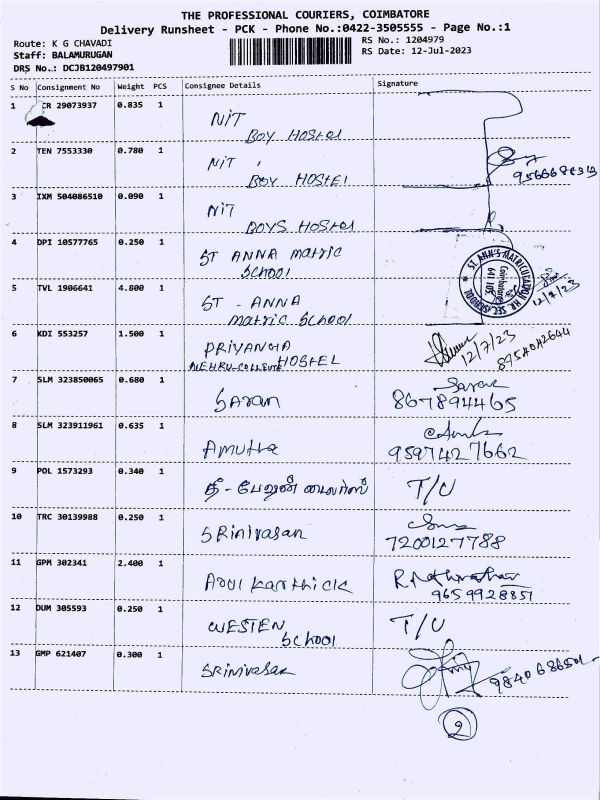 THE PROFESSIONAL COURIERS, COIMBATORE
Delivery Runsheet - PCK - Phone No.:0422-3505555 - Page No.:1
Route: K G CHAVADI
RS No.: 1204979
Staff: BALAMURUGAN
RS Date: 12-Jul-2023
DRS No.: DCJB120497901
S No Consignment No Weight PCS Consignee Details Signature
1 CR 29073937 0.835 1 NIT
BOY HOSTEL
2 TEN 7553330 0.780 1 NIT
BOY HOSTEL
3 IXM 504086510 0.090 1 NIT
BOYS HOSTEL
4 DPI 10577765 0.250 1 ST ANNA matric
School
ST. ANN'S MATRICULATION HR. SEC. SCHOOL
Coimbatore
641 105
12/7/23
5 TVL 1906641 4.800 1 ST - ANNA
matric School
6 KDI 553257 1.500 1 PRIYANGA
HOSTEL
12/7/23
7 SLM 323850065 0.680 1 Saran Saran
867894465
8 SLM 323911961 0.635 1 Amutha
9597427662
9 POL 1573293 0.340 1 T/U
10 TRC 30139988 0.250 1 SRinivasan
7200127788
11 GPM 302341 2.400 1 Arul karthick
9659928851
12 DUM 305593 0.250 1 WESTEN
School T/U
13 GMP 621407 0.300 1 SRinivasan
2